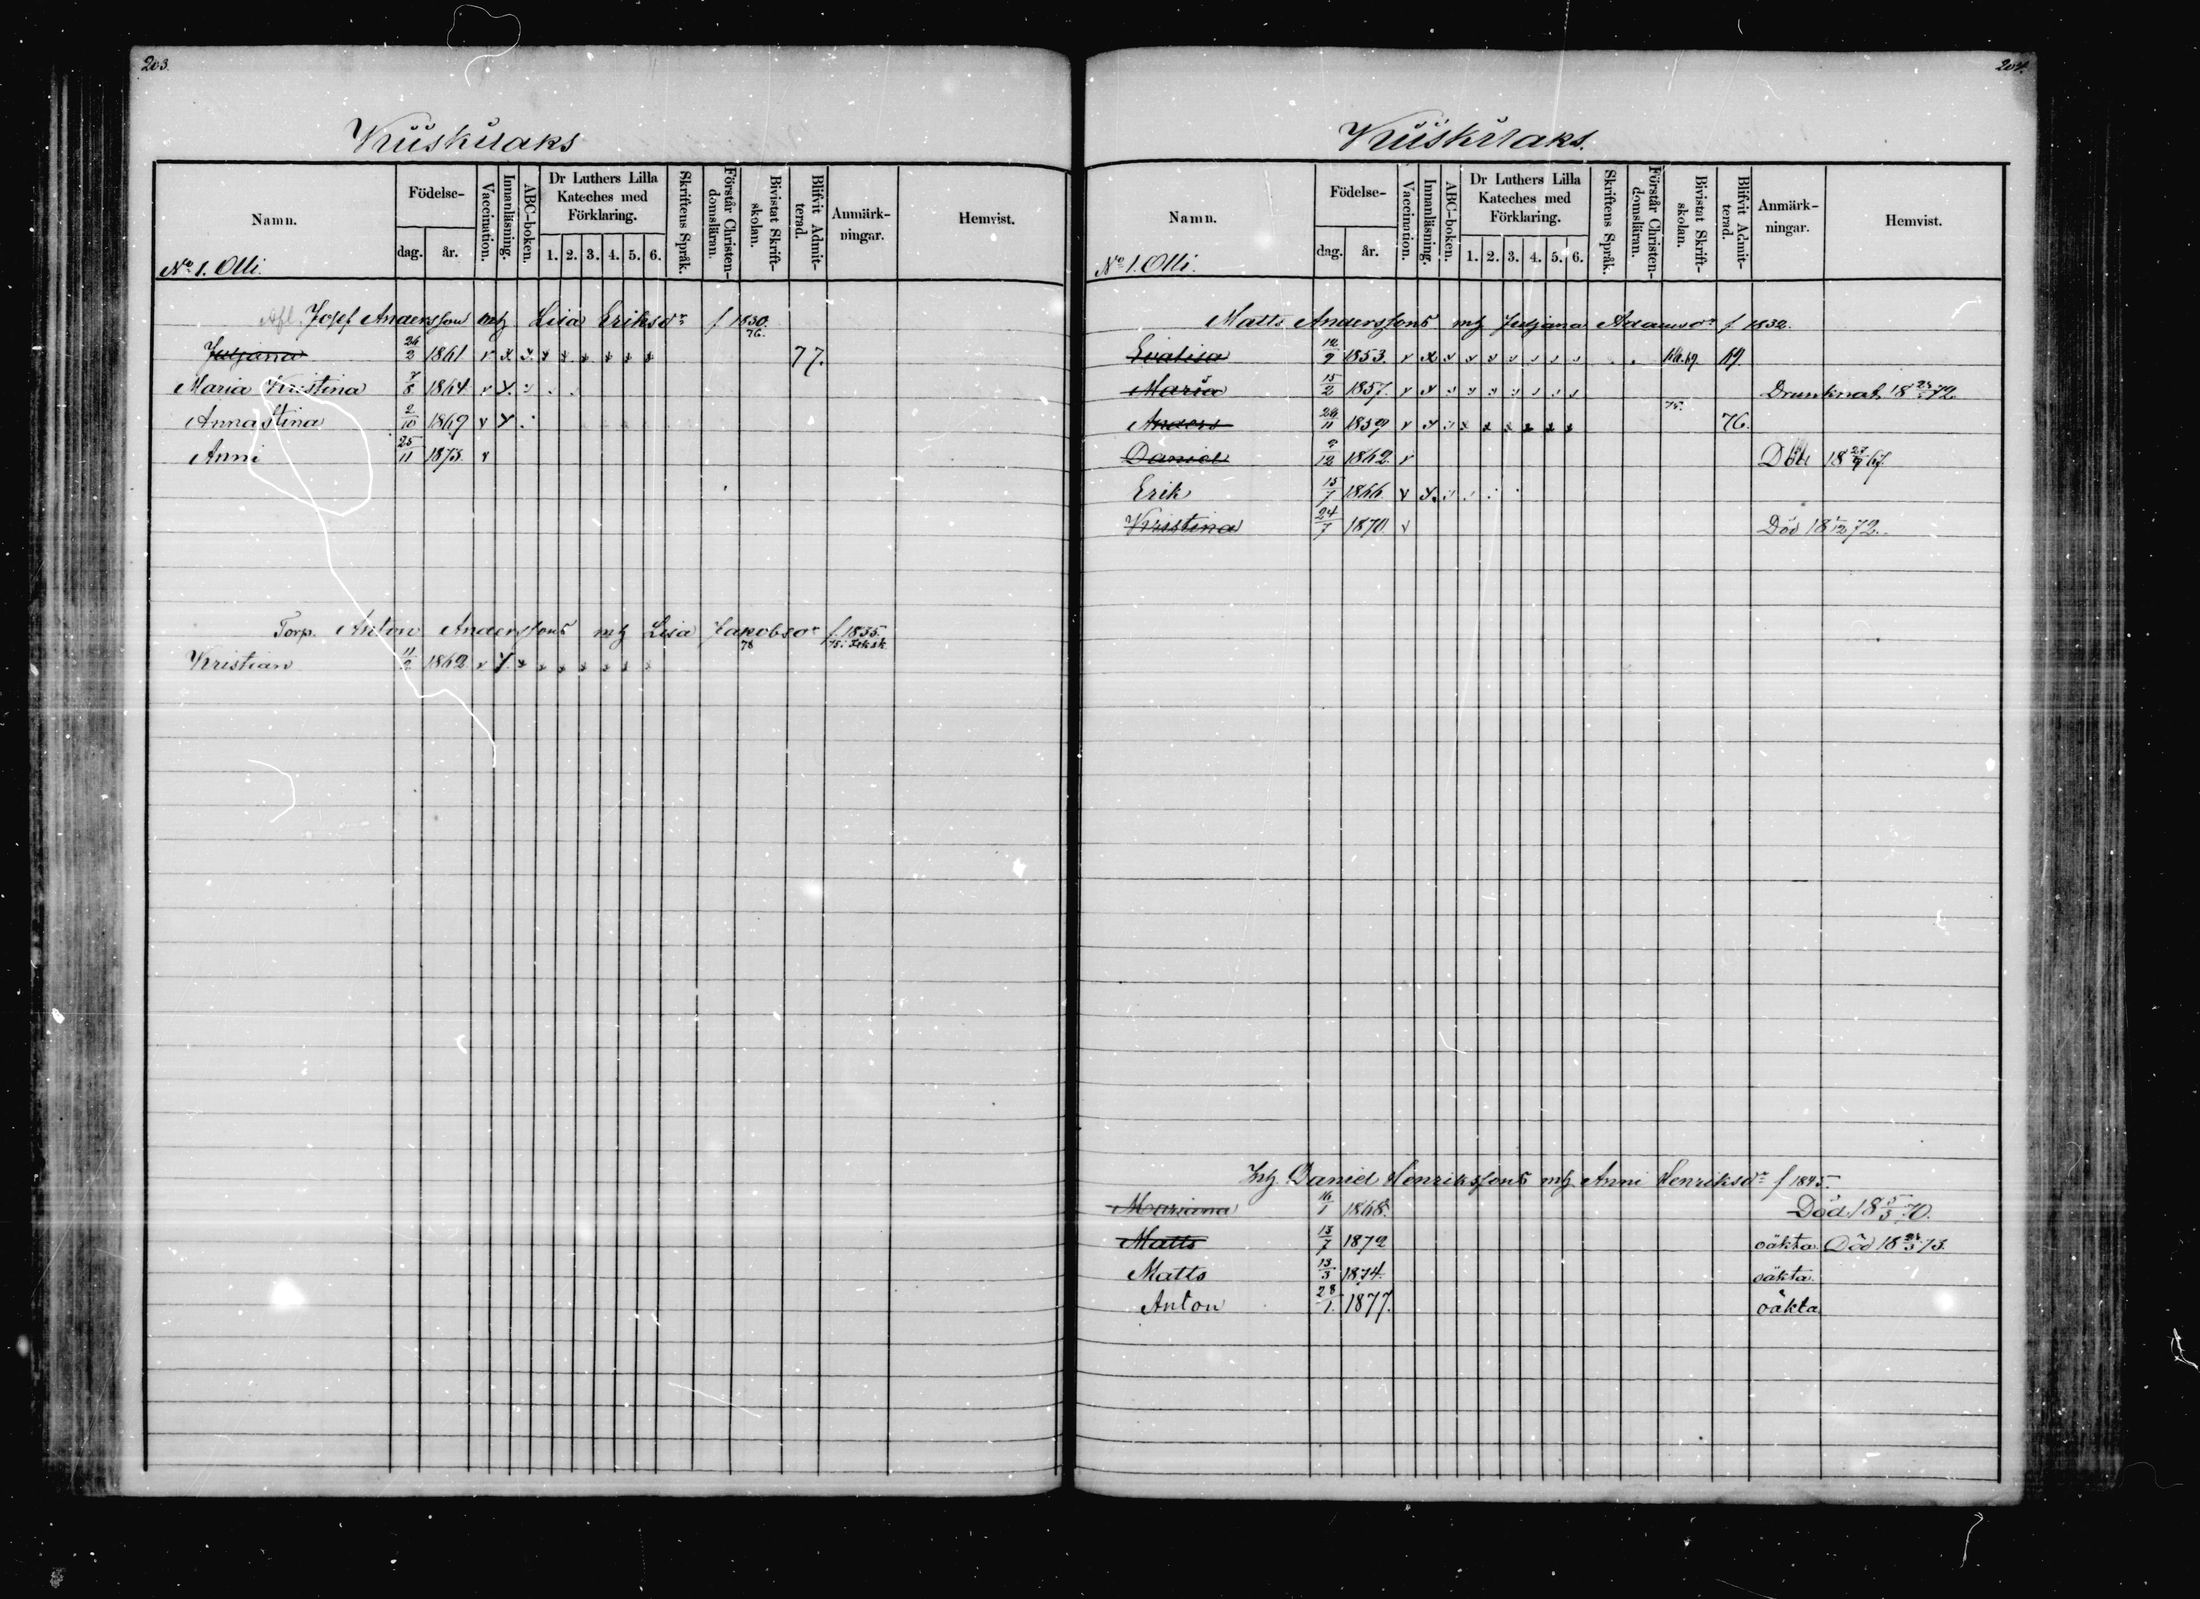 203.
Kuuskulaks
Namn.
Födelse-
dag.
år.
Vaccination.
Innanläsning.
ABC-boken.
Dr Luthers Lilla
Kateches med
Förklaring.
1. 2. 3. 4. 5. 6.
Skriftens Språk.
Förstår Christen-
domsläran.
Bivistat Skrift-
skolan.
Blifvit Admit-
terad.
Anmärk-
ningar.
Hemvist.
No 1. Olli.
Afl. Josef Andersson mh Lisa Eriksdr f 1830.
Juljana 26/2 1861 v x x x x x x x x 76. 77.
Maria Kristina 7/8 1864 v x
Annastina 2/10 1869 v x
Anni 25/11 1873. v
Torp. Anton Anderssons mh Lisa Jakobsdr f. 1835.
Kristian 11/2 1862 v x x x x x x x x 78
204.
Kuuskulaks.
Namn.
Födelse-
dag.
år.
Vaccination.
Innanläsning.
ABC-boken.
Dr Luthers Lilla
Kateches med
Förklaring.
1. 2. 3. 4. 5. 6.
Skriftens Språk.
Förstår Christen-
domsläran.
Bivistat Skrift-
skolan.
Blifvit Admit-
terad.
Anmärk-
ningar.
Hemvist.
No 1. Olli.
Matts Anderssons mh Juljana Adamsdr f 1832.
Evalisa 12/9 1853. v x 69 69.
Maria 15/2 1857. v x Drunknat 18 72
Anders 29/11 1859 v x x x x x x x 75. 76.
Daniel 9/12 1862. v Död 18 27/9 67.
Erik 15/7 1866 v x
Kristina 24/7 1870. v Död 18 1/12 72.
Inh Daniel Henrikssons mh Anni Henriksdr f 1845.
Marianna 16/1 1868. Död 18 5/3 70.
Matts 13/7 1872 oäkta Död 18 73.
Matts 13/3 1874. oäkta.
Anton 28/1. 1877. oäkta